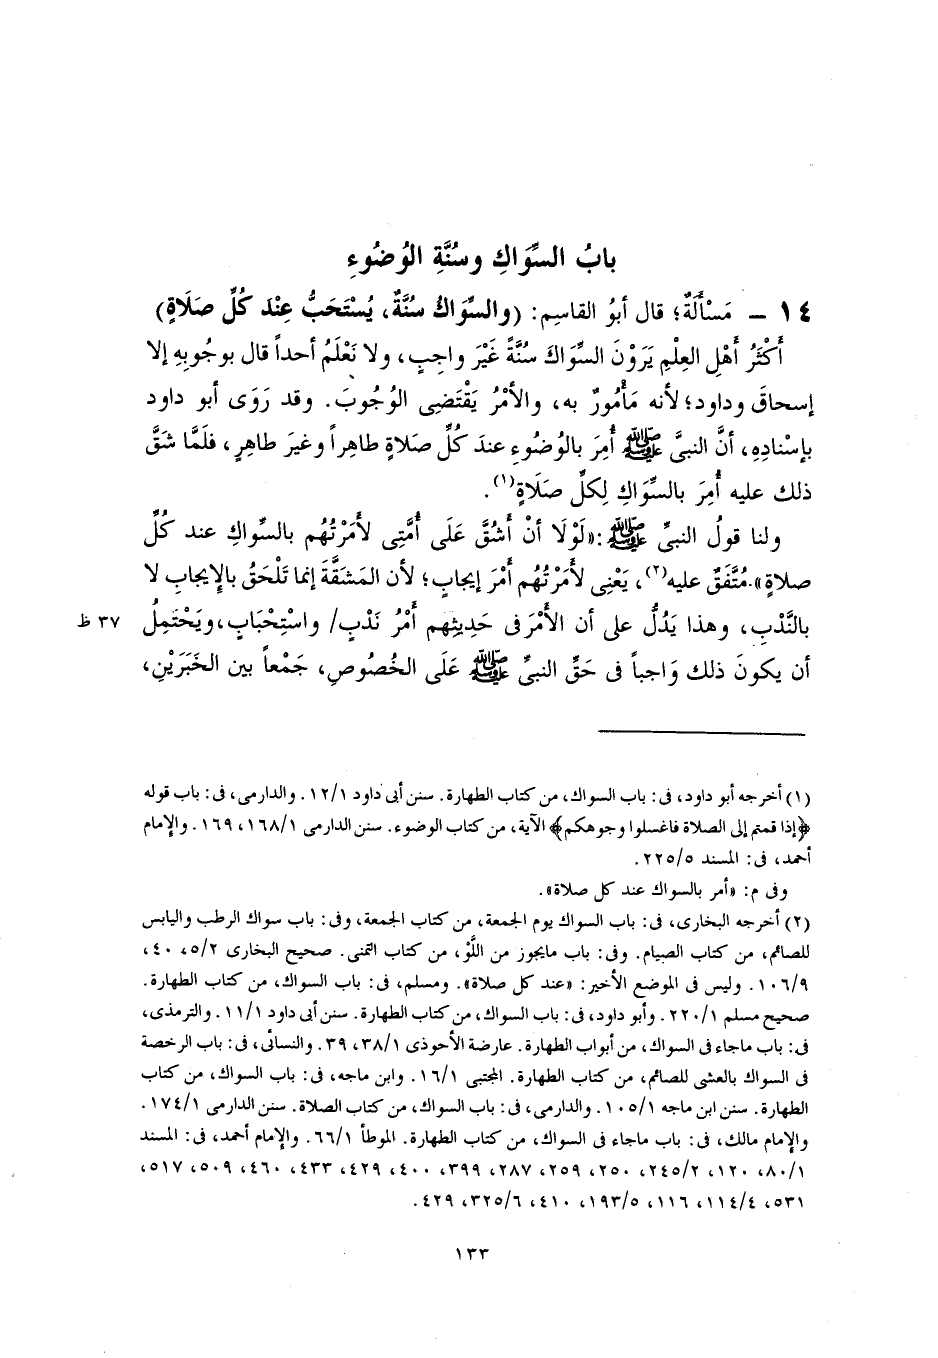 بابُ السِّوَاكِ وسُنَّةِ الوُضُوءِ
١٤ – مَسْأَلَةٌ؛ قال أبُو القاسِم: (والسِّوَاكُ سُنَّةٌ، يُسْتَحَبُّ عِنْدَ كُلِّ صَلَاةٍ)
أَكْثَرُ أَهْلِ العِلْمِ يَرَوْنَ السِّوَاكَ سُنَّةً غَيْرَ واجِبٍ، ولا نَعْلَمُ أحداً قال بوجُوبِهِ إلا
إسحاقَ وداود؛ لأنه مَأْمُورٌ به، والأمْرُ يَقْتَضِى الوُجُوبَ. وقد رَوَى أبو داود
بإسْنادِهِ، أنَّ النبىَّ ﷺ أُمِرَ بالوُضُوءِ عندَ كُلِّ صلاةٍ طاهِراً وغيرَ طاهِرٍ، فلَمَّا شَقَّ
ذلك عليه أُمِرَ بالسِّوَاكِ لِكلِّ صَلَاةٍ(١).
ولنا قولُ النبىِّ ﷺ: «لَوْلَا أنْ أَشُقَّ عَلَى أُمَّتِى لأَمَرْتُهُم بالسِّوَاكِ عند كُلِّ
صلاة». مُتَّفَقٌ عليه(٢)، يَعْنِى لأَمَرْتُهُم أَمْرَ إيجابٍ؛ لأن المَشَقَّةَ إنما تَلْحَقُ بالإِيجابِ لا
بالنَّدْبِ، وهذا يَدُلُّ على أن الأمْرَ فى حَدِيثِهم أَمْرُ نَدْبٍ/ واسْتِحْبَابٍ، ويَحْتَمِلُ ٣٧ ظ
أن يكونَ ذلك وَاجباً فى حَقِّ النبىِّ ﷺ عَلَى الخُصُوصِ، جَمْعاً بين الخَبَرَيْنِ،
(١) أخرجه أبو داود، فى: باب السواك، من كتاب الطهارة. سنن أبى داود ١٢/١. والدارمى، فى: باب قوله
﴿إذا قمتم إلى الصلاة فاغسلوا وجوهكم﴾ الآية، من كتاب الوضوء. سنن الدارمى ١٦٨/١، ١٦٩. والإمام
أحمد، فى: المسند ٢٢٥/٥.
وفى م: «أمر بالسواك عند كل صلاة».
(٢) أخرجه البخارى، فى: باب السواك يوم الجمعة، من كتاب الجمعة، وفى: باب سواك الرطب واليابس
للصائم، من كتاب الصيام. وفى: باب مايجوز من اللَّوْ، من كتاب التمنى. صحيح البخارى ٥/٢، ٤٠،
١٠٦/٩. وليس فى الموضع الأخير: «عند كل صلاة». ومسلم، فى: باب السواك، من كتاب الطهارة.
صحيح مسلم ٢٢٠/١. وأبو داود، فى: باب السواك، من كتاب الطهارة. سنن أبى داود ١١/١. والترمذى،
فى: باب ماجاء فى السواك، من أبواب الطهارة. عارضة الأحوذى ٣٨/١، ٣٩. والنسائى، فى: باب الرخصة
فى السواك بالعشى للصائم، من كتاب الطهارة. المجتبى ١٦/١. وابن ماجه، فى: باب السواك، من كتاب
الطهارة. سنن ابن ماجه ١٠٥/١. والدارمى، فى: باب السواك، من كتاب الصلاة. سنن الدارمى ١٧٤/١.
والإمام مالك، فى: باب ماجاء فى السواك، من كتاب الطهارة. الموطأ ٦٦/١. والإمام أحمد، فى: المسند
٨٠/١، ١٢٠، ٢٤٥/٢، ٢٥٠، ٢٥٩، ٢٨٧، ٣٩٩، ٤٠٠، ٤٢٩، ٤٣٣، ٤٦٠، ٥٠٩، ٥١٧،
٥٣١، ١١٤/٤، ١١٦، ١٩٣/٥، ٤١٠، ٣٢٥/٦، ٤٢٩.
١٣٣